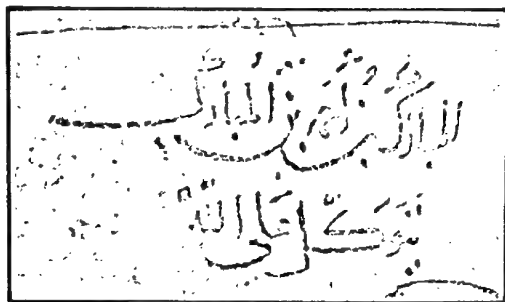 المبارك بن أحمد بن المبارك
توكل على الله